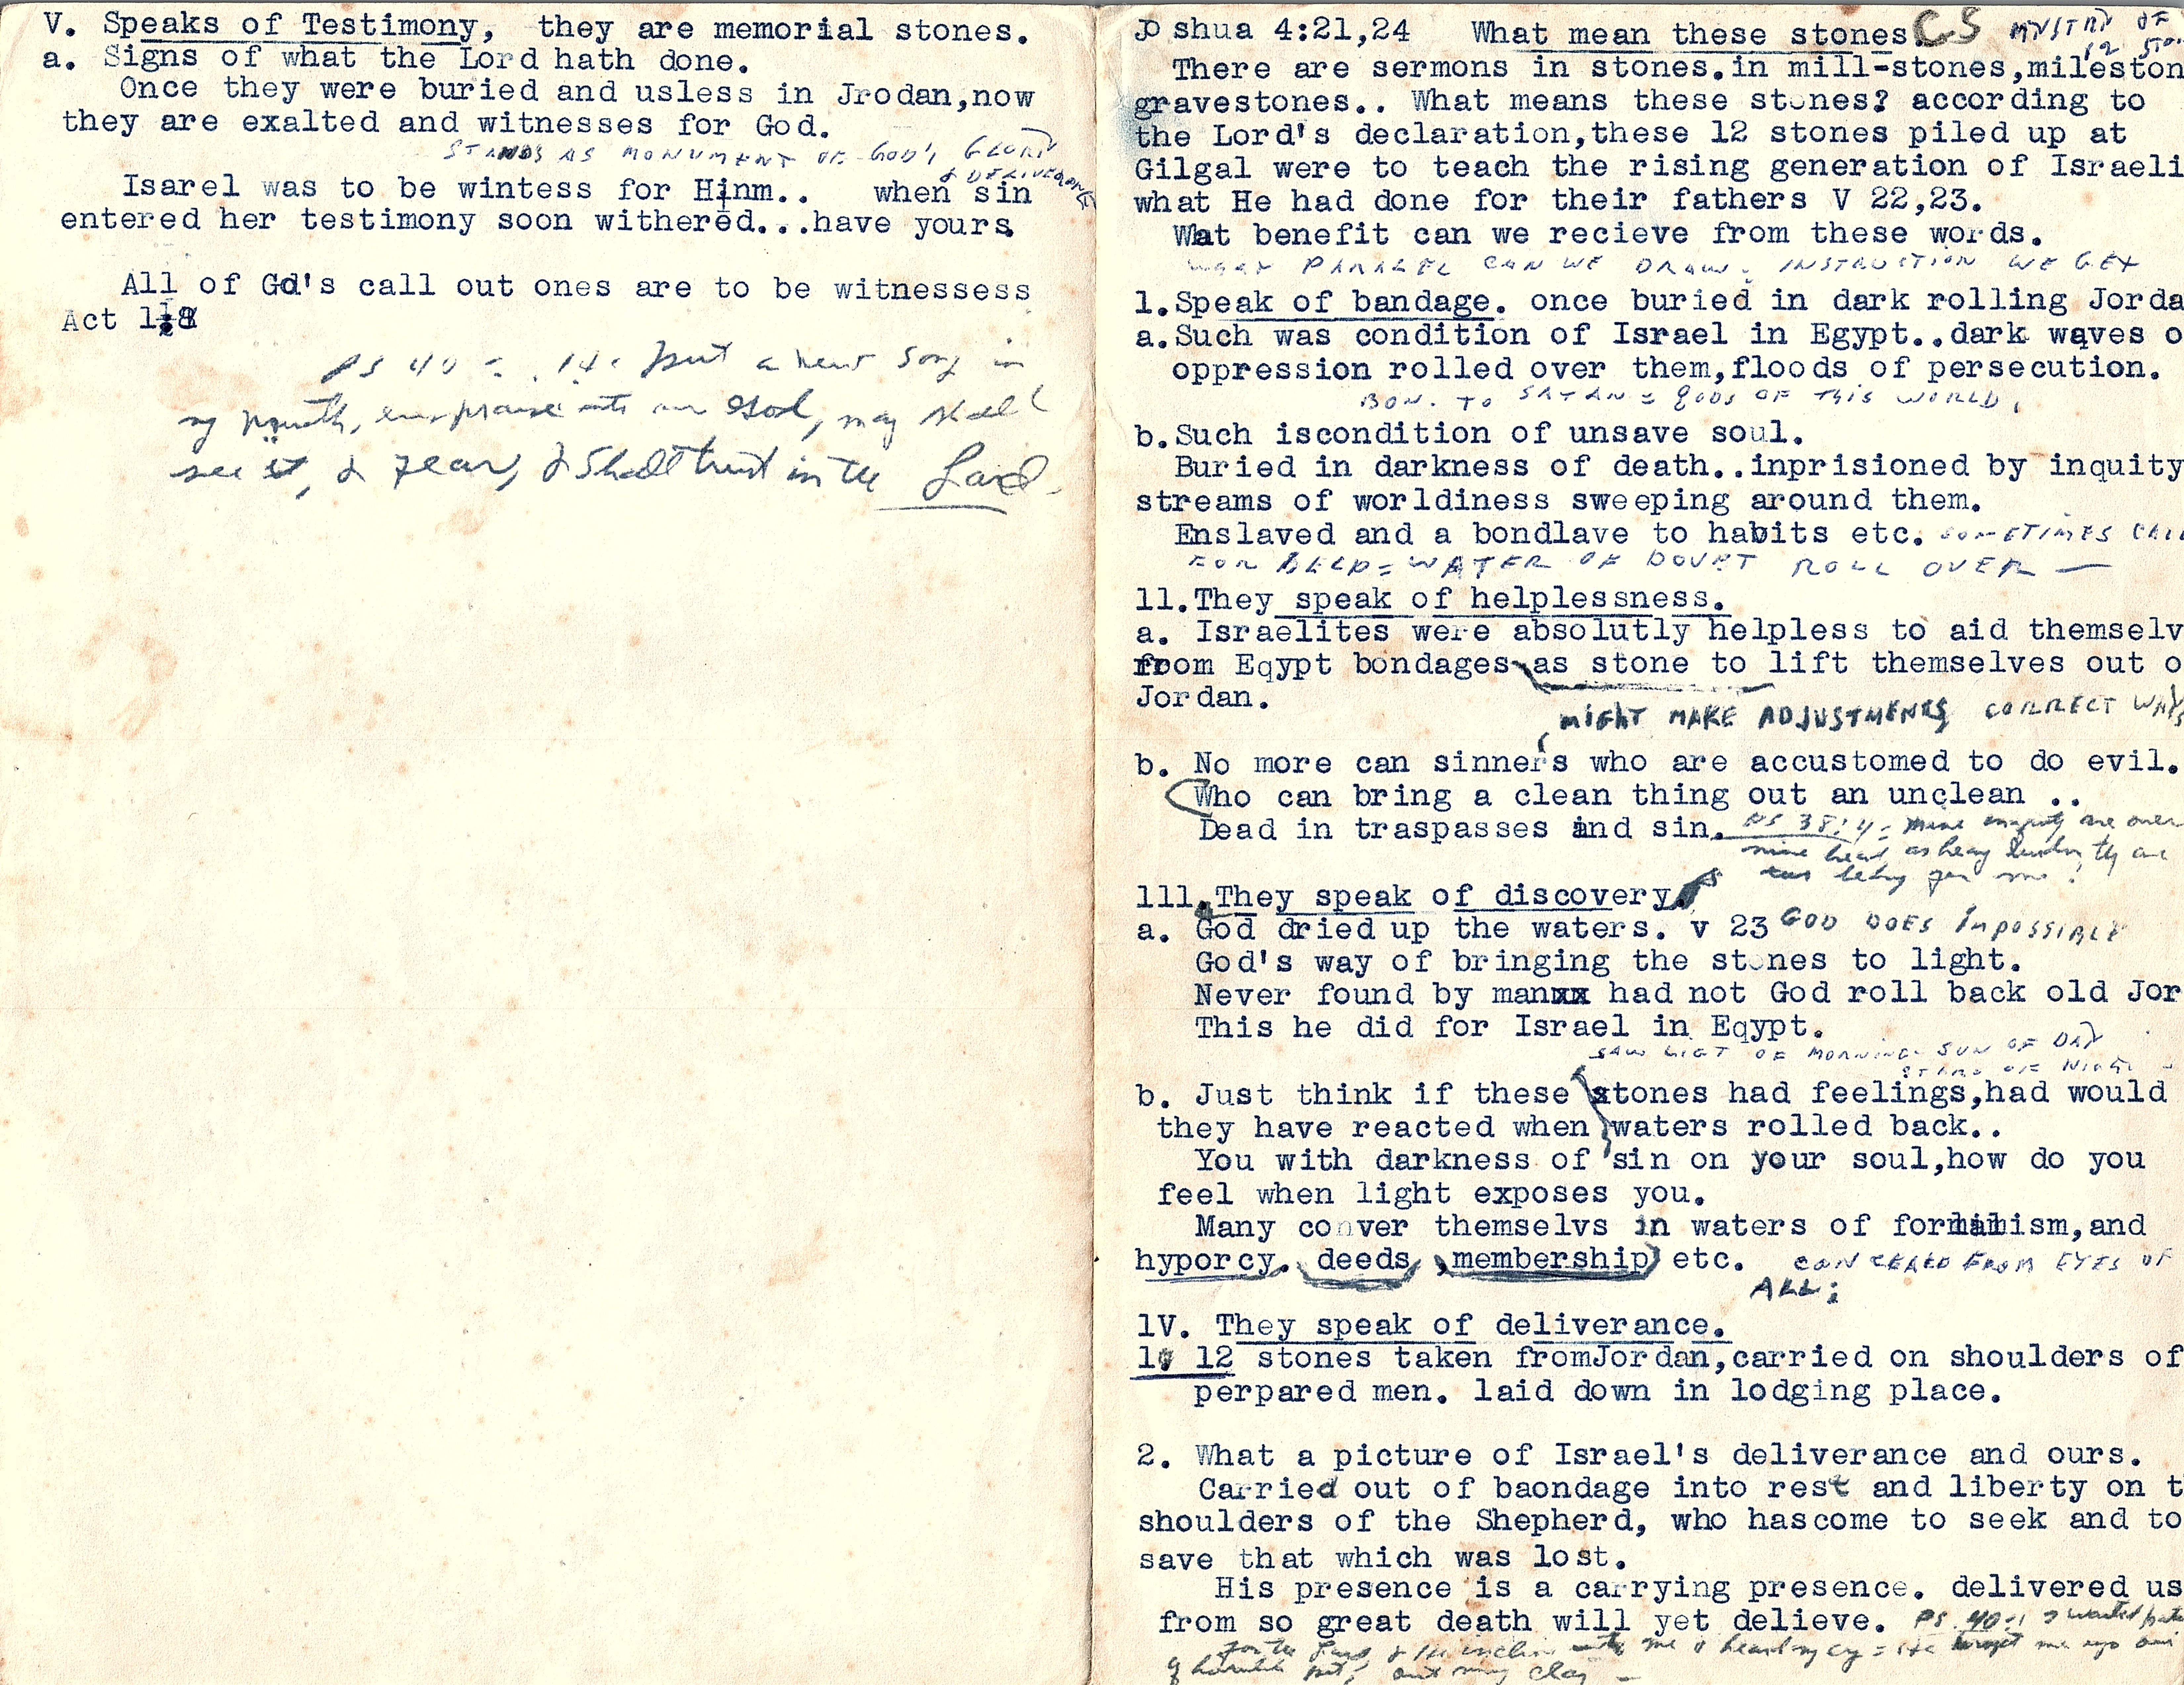 V. Speaks of Testimony, they are memorial stones.
a. Signs of what the Lord hath done.
Once they were buried and usless in Jrodan,now
they are exalted and witnesses for God.
STANDS AS MONUMENT OF GOD'S GLORY
& DELIVERANCE
Isarel was to be wintess for Hinm.. when sin
entered her testimony soon withered...have yours
All of Gd's call out ones are to be witnessess
Act 1:8
PS 40 = put a new song in
my mouth, even praise unto our God, many shall
see it, & fear, & shall trust in the Lord.
Jo shua 4:21,24 What mean these stones. CS MYSTRY OF
12 STON
There are sermons in stones.in mill-stones,mileston
gravestones.. What means these stones? according to
the Lord's declaration,these 12 stones piled up at
Gilgal were to teach the rising generation of Israeli
what He had done for their fathers V 22,23.
Wat benefit can we recieve from these words.
WHAT PARALEL CAN WE DRAW. INSTRUCTION WE GET
1.Speak of bandage. once buried in dark rolling Jorda
a.Such was condition of Israel in Egypt..dark waves o
oppression rolled over them,floods of persecution.
BON. TO SATAN = GODS OF THIS WORLD.
b.Such iscondition of unsave soul.
Buried in darkness of death..inprisioned by inquity
streams of worldiness sweeping around them.
Enslaved and a bondlave to habits etc. SOMETIMES CALL
FOR HELP = WATER OF DOUBT ROLL OVER —
11.They speak of helplessness.
a. Israelites were absolutly helpless to aid themselv
from Eqypt bondages as stone to lift themselves out o
Jordan.
MIGHT MAKE ADJUSTMENTS CORRECT WAYS
b. No more can sinners who are accustomed to do evil.
Who can bring a clean thing out an unclean ..
Dead in traspasses and sin. PS 38:4 = mine iniquity are over
mine head, as heavy burden they are
too heavy for me.
111. They speak of discovery.
a. God dried up the waters. v 23 GOD DOES IMPOSSIBLE
God's way of bringing the stones to light.
Never found by manxx had not God roll back old Jor
This he did for Israel in Eqypt.
SAW LIGT OF MORNING SUN OF DAY
STARS OF NIGHT
b. Just think if these stones had feelings,had would
they have reacted when waters rolled back..
You with darkness of sin on your soul,how do you
feel when light exposes you.
Many conver themselvs in waters of formalism,and
hyporcy. deeds ,membership) etc. CONCEALED FROM EYES OF
ALL;
1V. They speak of deliverance.
1. 12 stones taken fromJordan,carried on shoulders of
perpared men. laid down in lodging place.
2. What a picture of Israel's deliverance and ours.
Carried out of baondage into rest and liberty on t
shoulders of the Shepherd, who hascome to seek and to
save that which was lost.
His presence is a carrying presence. delivered us
from so great death will yet delieve. PS. 40:1 I waited
for the Lord & He inclin unto me & heard my cry = He brought me up out
of horrible pit, out miry clay —